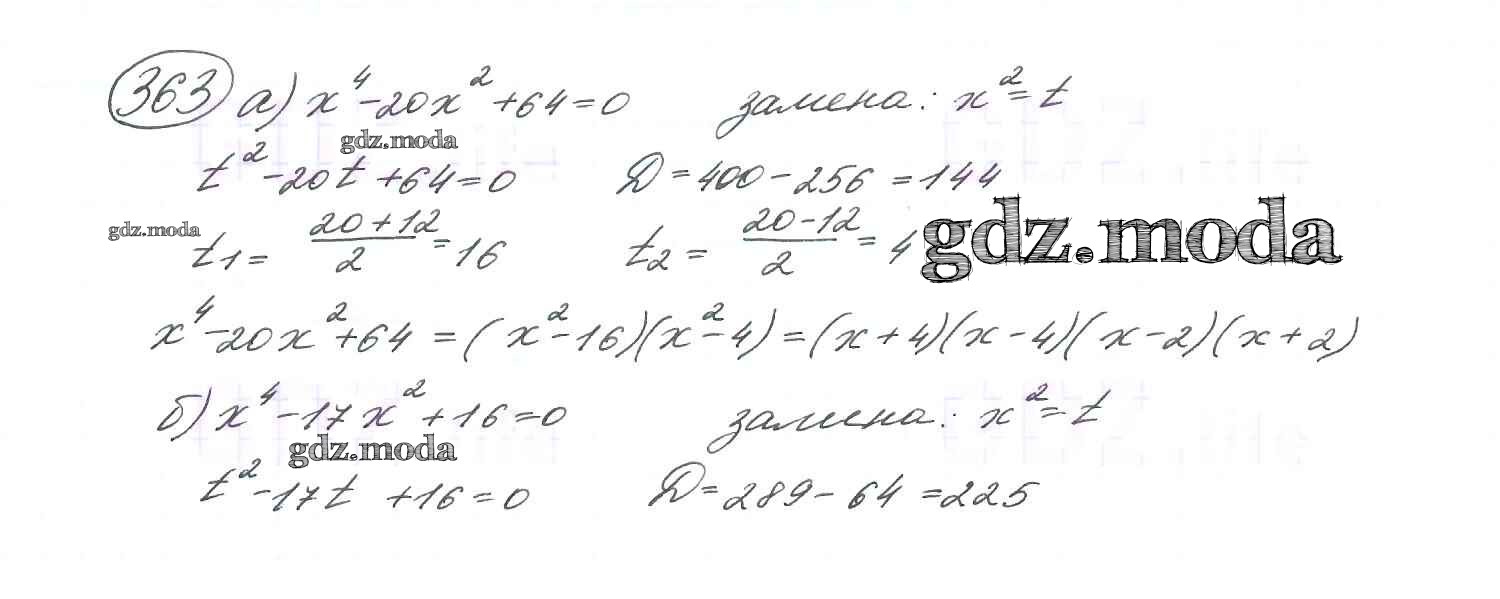 363 а) x⁴-20x²+64=0 замена: x²=t
gdz.moda
t²-20t+64=0 D=400-256=144
gdz.moda t₁= (20+12)/2 =16 t₂= (20-12)/2 =4 gdz.moda
x⁴-20x²+64=(x²-16)(x²-4)=(x+4)(x-4)(x-2)(x+2)
б) x⁴-17x²+16=0 замена: x²=t
gdz.moda
t²-17t+16=0 D=289-64=225